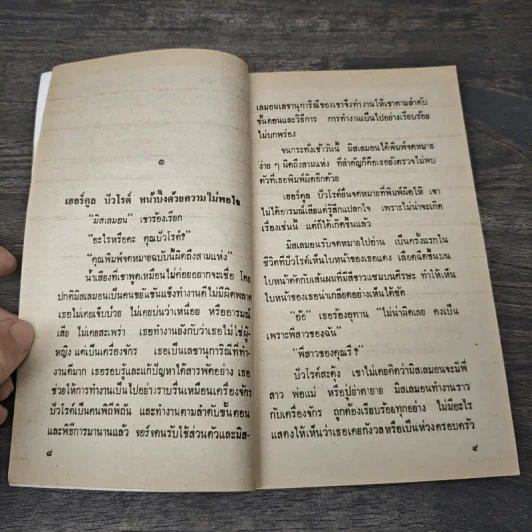 ๑
เฮอร์คูล ปัวโรต์ หน้าบึ้งด้วยความไม่พอใจ
"มิสเลมอน" เขาร้องเรียก
"อะไรหรือคะ คุณปัวโรต์?"
"คุณพิมพ์จดหมายฉบับนี้ผิดถึงสามแห่ง"
น้ำเสียงที่เขาพูดเหมือนไม่ค่อยอยากจะเชื่อ โดย
ปกติมิสเลมอนเป็นคนขยันขันแข็งทำงานดีไม่มีผิดพลาด
เธอไม่เคยเจ็บป่วย ไม่เคยบ่นว่าเหนื่อย หรืออารมณ์
เสีย ไม่เคยสะเพร่า เธอทำงานยังกับว่าเธอไม่ใช่ผู้-
หญิง แต่เป็นเครื่องจักร เธอเป็นเลขานุการิณีที่ทำ-
งานดีมาก เธอรอบรู้และแก้ปัญหาได้สารพัดอย่าง เธอ
ช่วยให้การทำงานเป็นไปอย่างราบรื่นเหมือนเครื่องจักร
ปัวโรต์เป็นคนพิถีพิถัน และทำงานตามลำดับขั้นตอน
และพิธีการมานานแล้ว จอร์จคนรับใช้ส่วนตัวและมิส-
๘
เลมอนเลขานุการิณีของเขาจึงทำงานให้เขาตามลำดับ
ขั้นตอนและวิธีการ การทำงานเป็นไปอย่างเรียบร้อย
ไม่บกพร่อง
จนกระทั่งเช้าวันนี้ มิสเลมอนได้พิมพ์จดหมาย
ง่าย ๆ ผิดถึงสามแห่ง ที่สำคัญก็คือเธอยังตรวจไม่พบ
ตัวที่เธอพิมพ์ผิดอีกด้วย
เฮอร์คูล ปัวโรต์ยื่นจดหมายที่พิมพ์ผิดให้ เขา
ไม่ได้อารมณ์เสียแต่รู้สึกแปลกใจ เพราะไม่น่าจะเกิด
เรื่องเช่นนี้ แต่ก็ได้เกิดขึ้นแล้ว
มิสเลมอนรับจดหมายไปอ่าน เป็นครั้งแรกใน
ชีวิตที่ปัวโรต์เห็นใบหน้าของเธอแดง เลือดฉีดขึ้นบน
ใบหน้าตัดกับเส้นผมที่มีสีขาวแซมบนศีรษะ ทำให้เห็น
ใบหน้าของเธอน่าเกลียดอย่างเห็นได้ชัด
"อ้อ" เธอร้องอุทาน "ไม่น่าผิดเลย คงเป็น
เพราะพี่สาวของฉัน"
"พี่สาวของคุณรึ?"
ปัวโรต์สะดุ้ง เขาไม่เคยคิดว่ามิสเลมอนจะมีพี่
สาว พ่อแม่ หรือปู่ย่าตายาย มิสเลมอนทำงานราว
กับเครื่องจักร ถูกต้องเรียบร้อยทุกอย่าง ไม่มีอะไร
แสดงให้เห็นว่าเธอเคยกังวลหรือเป็นห่วงครอบครัว
๙